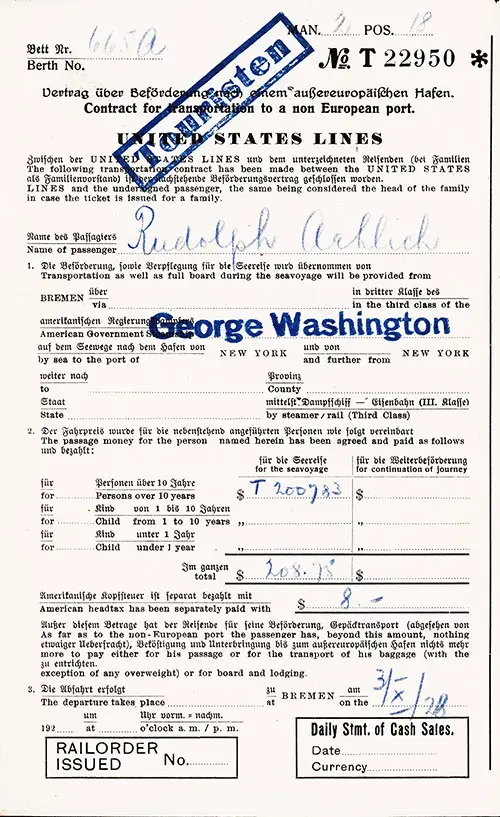 MAN. 2, POS. 18
Bett Nr. 665A
Berth No.
No. T 22950 *
Touristen
Vertrag über Beförderung nach einem außereuropäischen Hafen.
Contract for transportation to a non European port.
UNITED STATES LINES
Zwischen der UNITED STATES LINES und dem unterzeichneten Reisenden (bei Familien
The following transportation contract has been made between the UNITED STATES
als Familienvorstand) ist der nachstehende Beförderungsvertrag geschlossen worden.
LINES and the undersigned passenger, the same being considered the head of the family
in case the ticket is issued for a family.
Name des Passagiers
Name of passenger Rudolph
1. Die Beförderung, sowie Verpflegung für die Seereise wird übernommen von
Transportation as well as full board during the seavoyage will be provided from
BREMEN über in dritter Klasse des
via in the third class of the
amerikanischen Regierungsdampfers
American Government George Washington
auf dem Seewege nach dem Hafen von NEW YORK und von NEW YORK
by sea to the port of and further from
weiter nach Provinz
to County
Staat mittelst Dampfschiff — Eisenbahn (III. Klasse)
State by steamer/rail (Third Class)
2. Der Fahrpreis wurde für die nebenstehend angeführten Personen wie folgt vereinbart
The passage money for the person named herein has been agreed and paid as follows
und bezahlt:
für die Seereise für die Weiterbeförderung
for the seavoyage for continuation of journey
für Personen über 10 Jahre
for Persons over 10 years $ T 200783 $
für Kind von 1 bis 10 Jahren
for Child from 1 to 10 years „ „
für Kind unter 1 Jahr
for Child under 1 year „ „
Im ganzen
total $ 208.75 $
Amerikanische Kopfsteuer ist separat bezahlt mit
American headtax has been separately paid with $ 8.-
Außer diesem Betrage hat der Reisende für seine Beförderung, Gepäcktransport (abgesehen von
As far as to the non-European port the passenger has, beyond this amount, nothing
etwaiger Ueberfracht), Beköstigung und Unterbringung bis zum außereuropäischen Hafen nichts mehr
more to pay either for his passage or for the transport of his baggage (with the
zu entrichten.
exception of any overweight) or for board and lodging.
3. Die Abfahrt erfolgt zu BREMEN am 3/X/28
The departure takes place at on the
um Uhr vorm. = nachm.
192 at o'clock a. m. / p. m.
RAILORDER
ISSUED No.
Daily Stmt. of Cash Sales.
Date
Currency